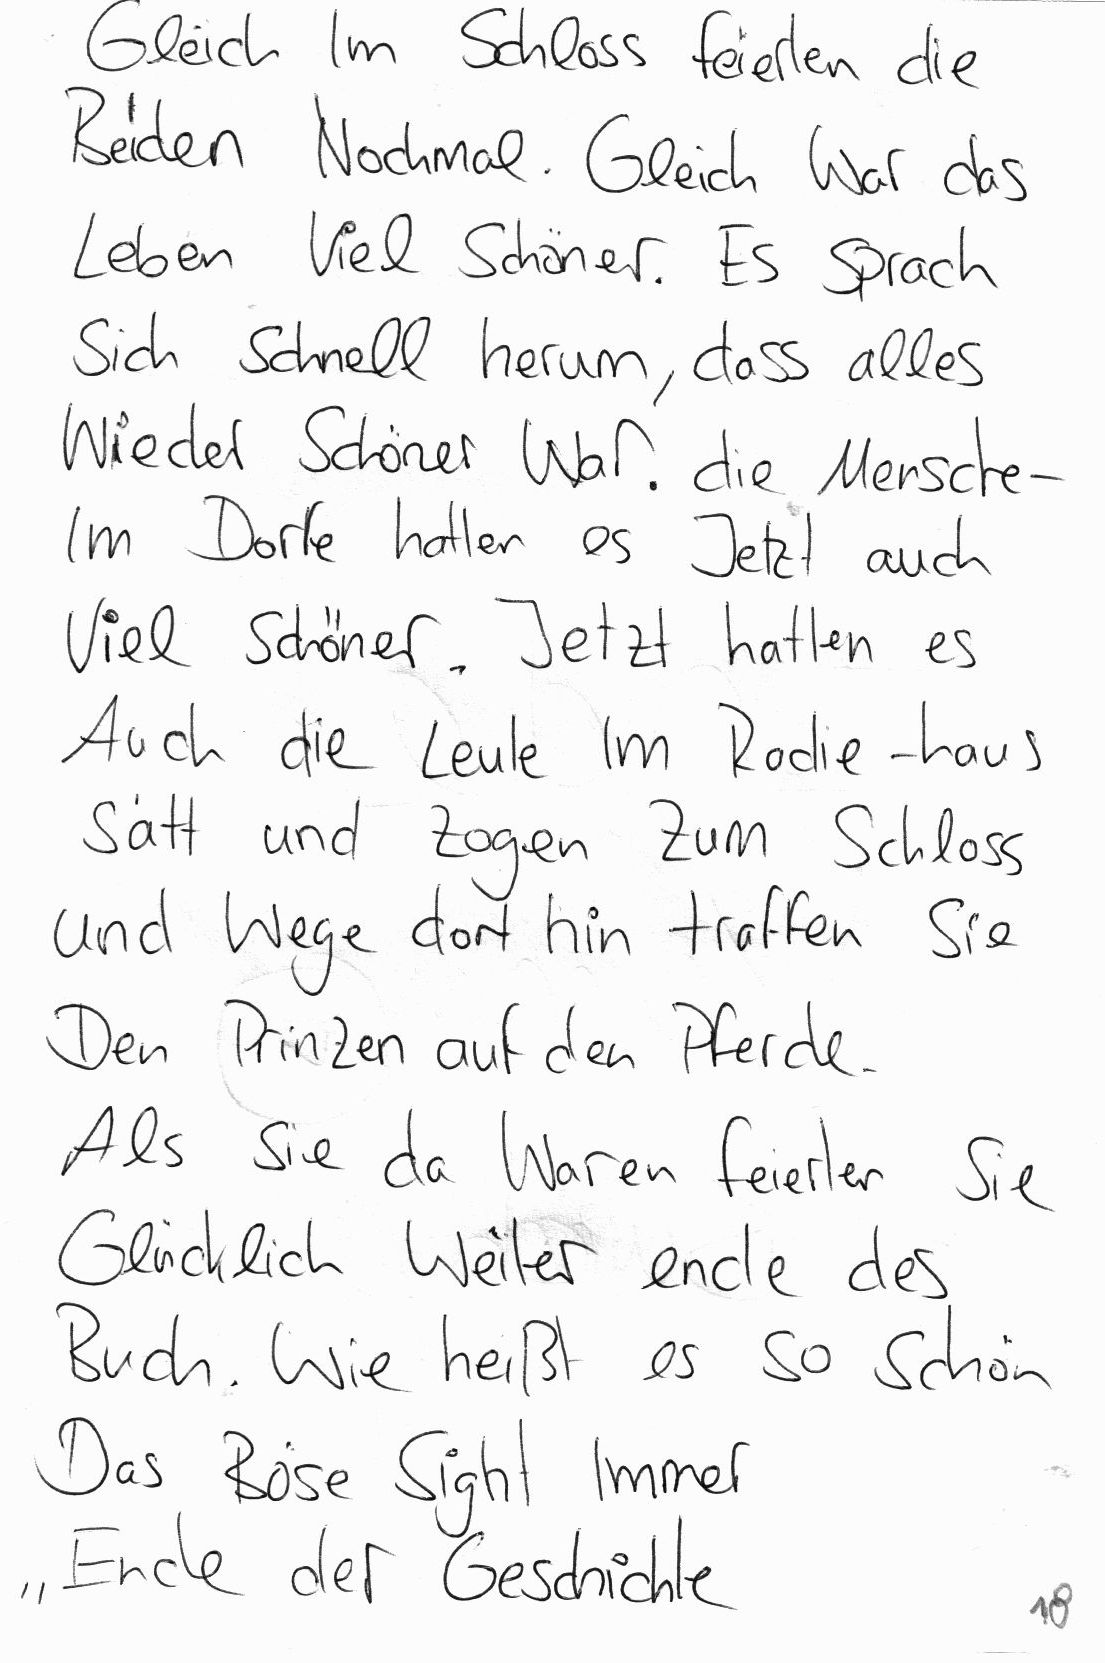 Gleich Im Schloss feierten die
Beiden Nochmal. Gleich War das
Leben Viel Schöner. Es Sprach
Sich Schnell herum, dass alles
Wieder Schöner War. die Mensche-
Im Dorfe hatten es Jetzt auch
Viel Schöner. Jetzt hatten es
Auch die Leute Im Radie-haus
Satt und Zogen Zum Schloss
und Wege dort hin traffen Sie
Den Prinzen auf den Pferde.
Als sie da Waren feierten Sie
Glücklich Weiter ende des
Buch. Wie heißt es so Schön
Das Böse Sight Immer
„Ende der Geschichte
18